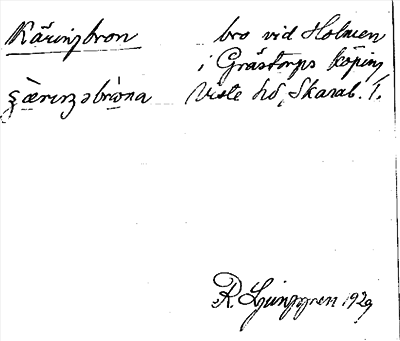 Käringbron bro vid Holmen
i Grästorps köping
Viste hd, Skarab. l.
R. Ljunggren 1929